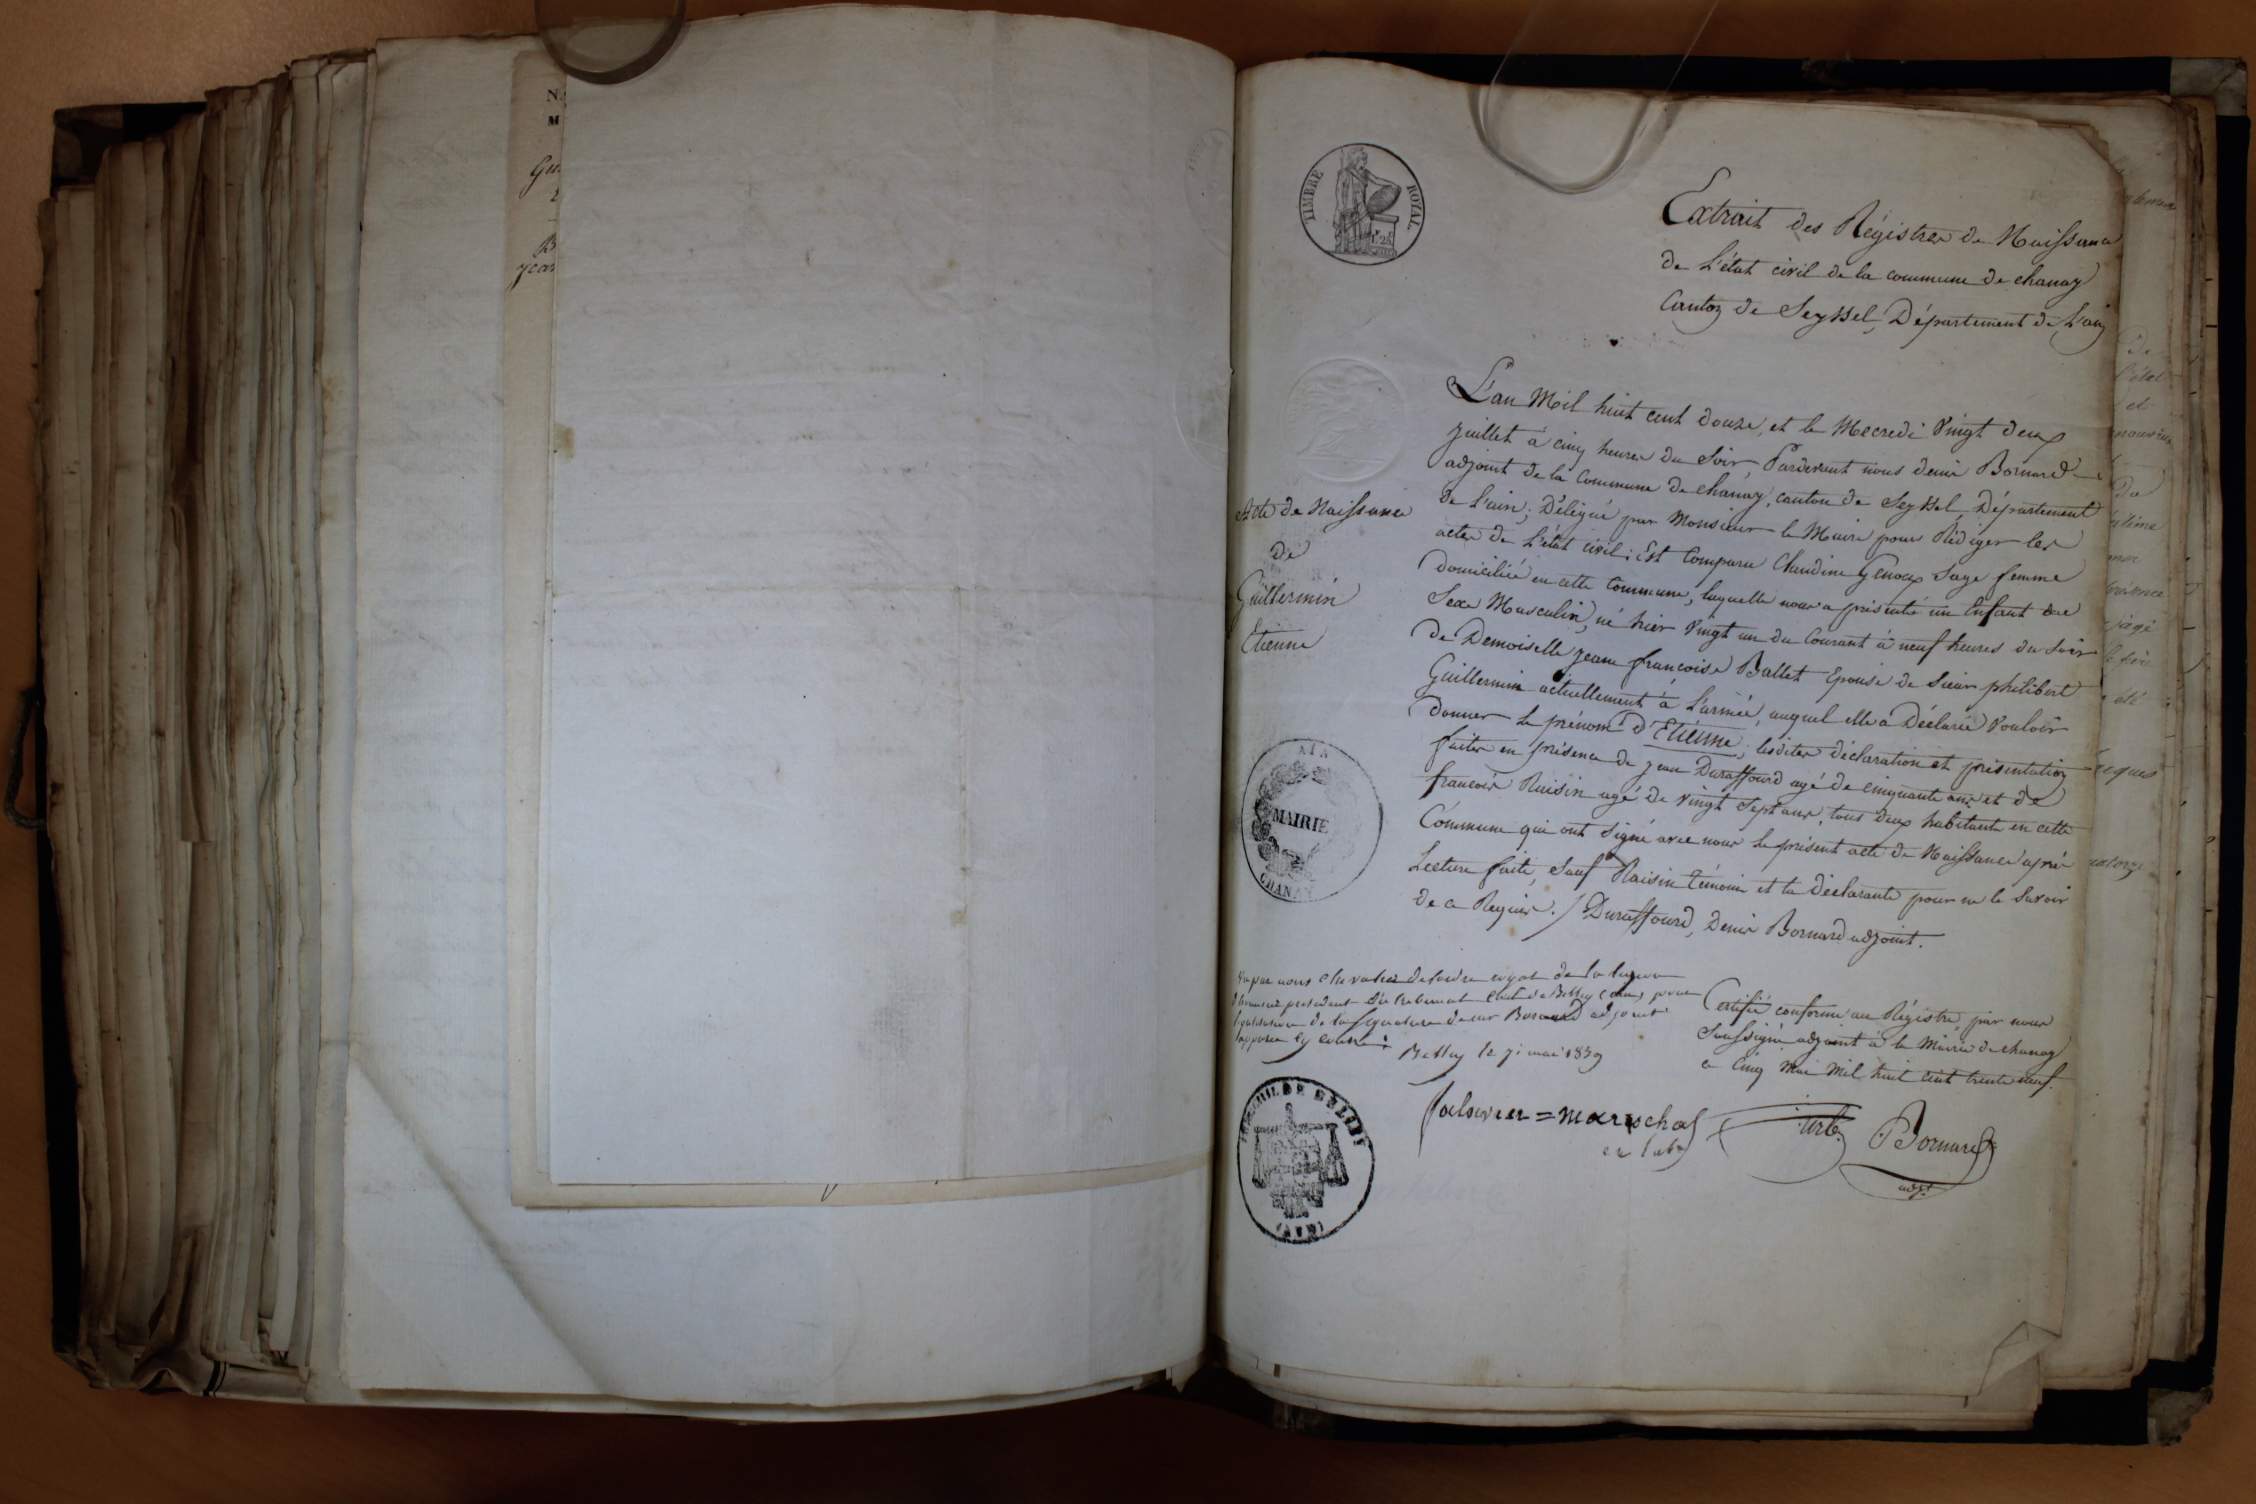 N.
M
TIMBRE ROYAL
Extrait des Régistres de Naissance
de L'état civil de la commune de chanay
Canton de Seyssel, Département de L'ain
Acte de Naissance
de
Guillermin
Etienne
L'an Mil huit cent douze, et le Mecredi Vingt deux
juillet à cinq heures du Soir, Pardevant nous denis Bornard
adjoint de la Commune de chanay, canton de Seyssel, Département
de L'ain; Délégué par Monsieur le Maire pour Rédiger les
actes de L'état civil; Est Comparu Claudine Genoux Sage femme
domiciliée en cette Commune, laquelle nous a présenté un Enfant du
Sexe Masculin, né hier Vingt un du Courant à neuf heures du Soir
de Demoiselle jeane françoise Ballet Epouse de Sieur philibert
Guillermin actuellement à L'armée, auquel elle a Déclaré Vouloir
donner le prénom d'Etienne; lesdites déclaration et présentation
faites en présence de jean Duraffourd agé de cinquante ans et de
francois Raisin agé de Vingt Sept ans, tous deux habitants en cette
Commune qui ont signé avec nous le présent acte de Naissance après
Lecture faite, Sauf Raisin témoin et la déclarante pour ne le savoir
de ce Requis. / Duraffourd, Denis Bornard adjoint.
AIN
MAIRIE
CHANAY
Vu par nous chevalier de lordre royal de la legion
dhonneur president du tribunal civil de Belley (ain) pour
legalisation de la signature de sieur Bornard adjoint
apposee cy contre
Belley le 7 mai 1839
Certifié conforme au Régistre, par nous
Soussigné adjoint à la Mairie de chanay
ce Cinq Mai Mil huit cent trente neuf.
Bornard
adjt
DE BELLEY
(AIN)